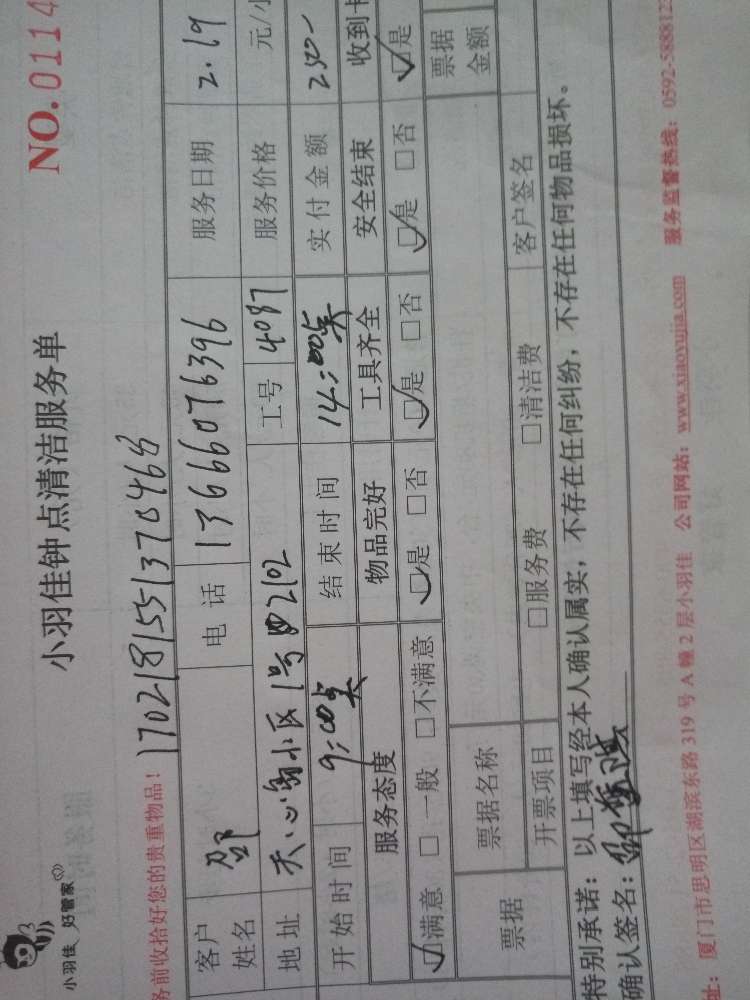 小羽佳 好管家
小羽佳钟点清洁服务单
NO.0114
务前收拾好您的贵重物品!
170218155137046
客户姓名 邵 电话 13666076396 服务日期 2.19
地址 天心岛小区1号2102 工号 4087 服务价格 元/小
开始时间 9:00点 结束时间 14:00点 实付金额
服务态度 物品完好 工具齐全 安全结束 收到卡
☑满意 □一般 □不满意 ☑是 □否 ☑是 □否 ☑是 □否 ☑是
票据 票据名称 票据金额
开票项目 □服务费 □清洁费 客户签名
特别承诺:以上填写经本人确认属实,不存在任何纠纷,不存在任何物品损坏。
确认签名:邵
址:厦门市思明区湖滨东路319号A幢2层小羽佳 公司网站:www.xiaoyujia.com 服务监督热线:0592-5888123